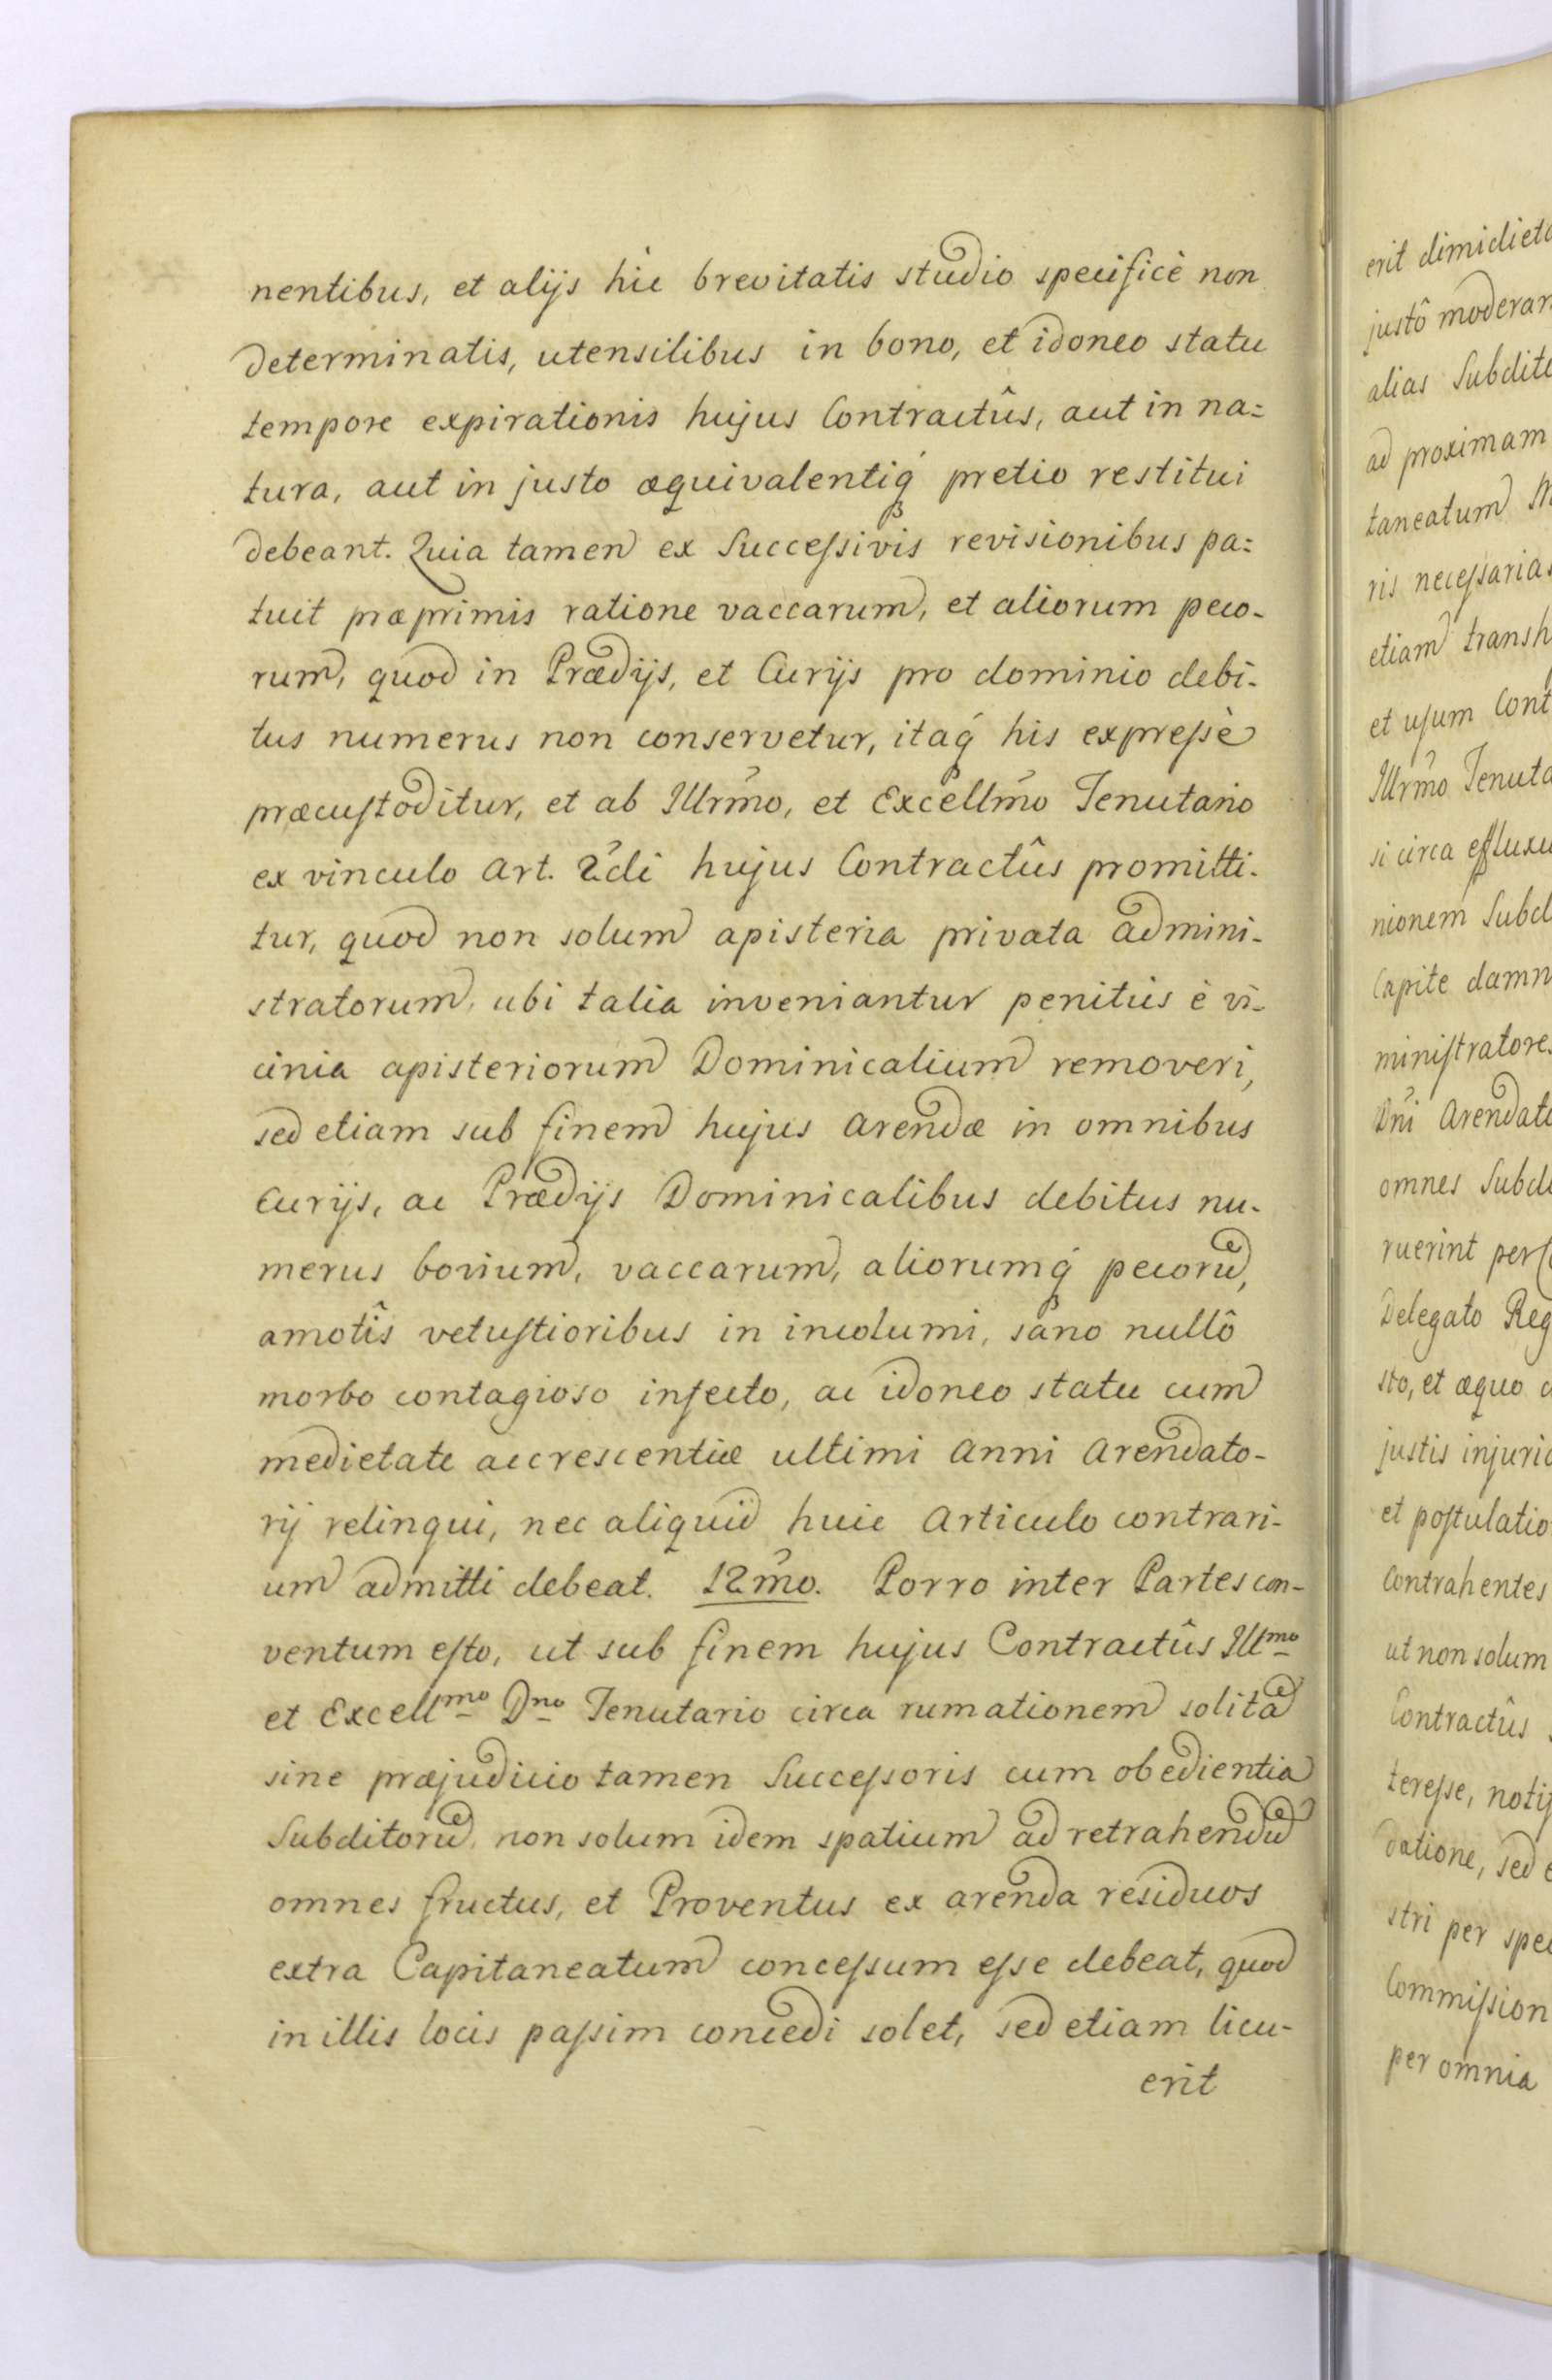 nentibus, et alijs hic brevitatis studio specificè non
determinatis, utensilibus in bono, et idoneo statu
tempore expirationis hujus Contractûs, aut in na=
tura, aut in justo æquivalentiq́ pretio restitui
debeant. Quia tamen ex Succeſsivis revisionibus pa=
tuit præprimis ratione vaccarum, et aliorum peco-
rum, quod in Prædijs, et Curijs pro dominio debi-
tus numerus non conservetur, itaq́ his expreſsè
præcuſtoditur, et ab Illrm̃o, et Excellm̃o Tenutario
ex vinculo Art. 2di hujus Contractûs promitti-
tur, quod non solum apisteria privata admini-
stratorum, ubi talia inveniantur penitùs è vi-
cinia apisteriorum Dominicalium removeri,
sed etiam sub finem hujus Arendæ in omnibus
Curijs, ac Prædijs Dominicalibus debitus nu-
merus bovium, vaccarum, aliorumq́ pecorũ,
amotîs vetuſtioribus in incolumi, sano nullô
morbo contagioso infecto, ac idoneo statu cum
medietate accrescentiæ ultimi Anni Arendato-
rij relinqui, nec aliquid huic Articulo contrari-
um admitti debeat. 12m̃o. Porro inter Partes con-
ventum eſto, ut sub finem hujus Contractûs Illmo
et Excellmo Dno Tenutario circa rumationem solitã
sine præjudicio tamen Succeſsoris cum obedientia
Subditorũ, non solum idem spatium ad retrahendũ
omnes fructus, et Proventus ex arenda residuos
extra Capitaneatum conceſsum eſse debeat, quod
in illis locis paſsim concedi solet, sed etiam licu-
erit
erit
justô
alias
ad proximam
taneatum
ris neceſsarias
etiam
et uſum
Illrm̃o
si circa
nionem
Capite

Dñi

omnes
ruerint
Delegato
sto, et æquo
justis
et
Contrahentes
ut non solum
Contractûs
tereſse,
datione, sed
stri per

per omnia